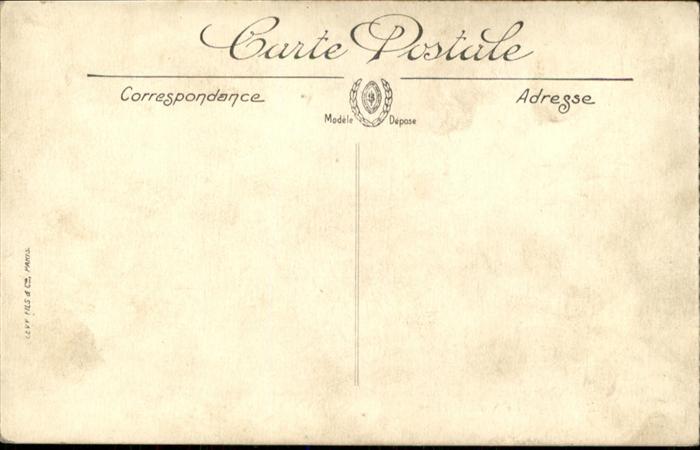 Carte Postale
Correspondance
Adresse
Modèle Déposé
LEVY FILS & Cie, PARIS.